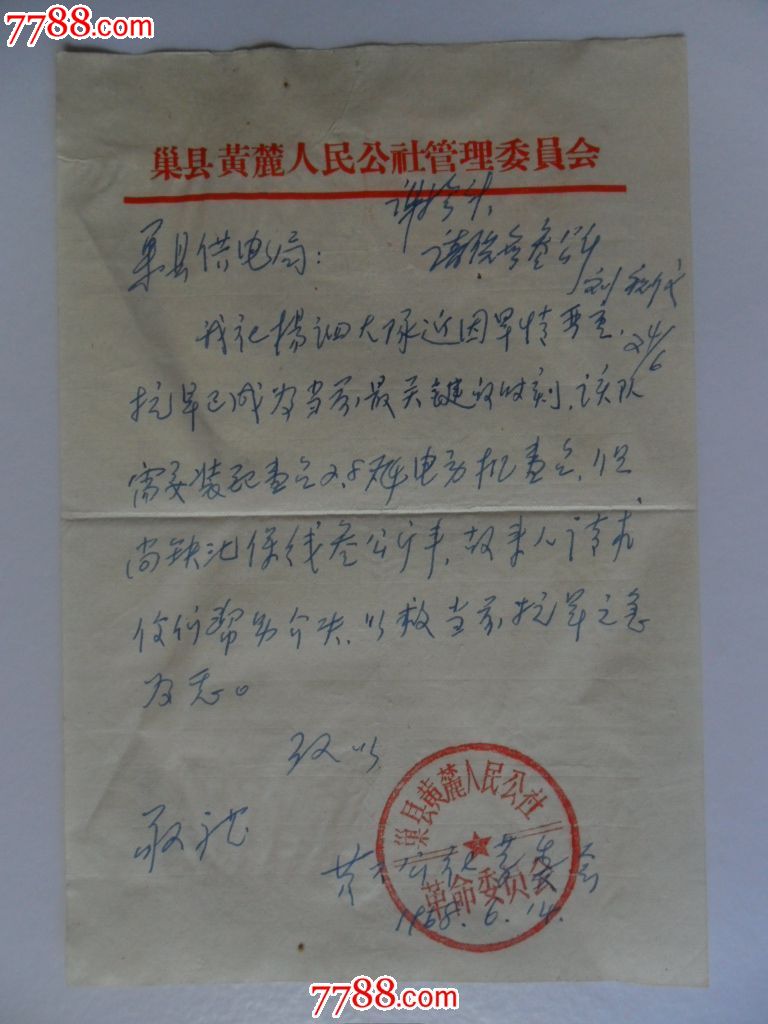 7788.com
7788.com
巢县黄麓人民公社管理委員会
巢县供电局：
请给予叁公斤
刘
24/6
我社楊泗大队近因旱情严重，
抗旱已成为当前最关键的时刻，该队
需要装配壹台2.8瓩电动机壹台，但
尚缺 线叁公斤半，故来人请求
你们帮助介决，以救当前抗旱之急
为感。
致以
敬礼
黄 公社革委会
1968.6.14.
巢县黄麓人民公社
革命委员会
7788.com